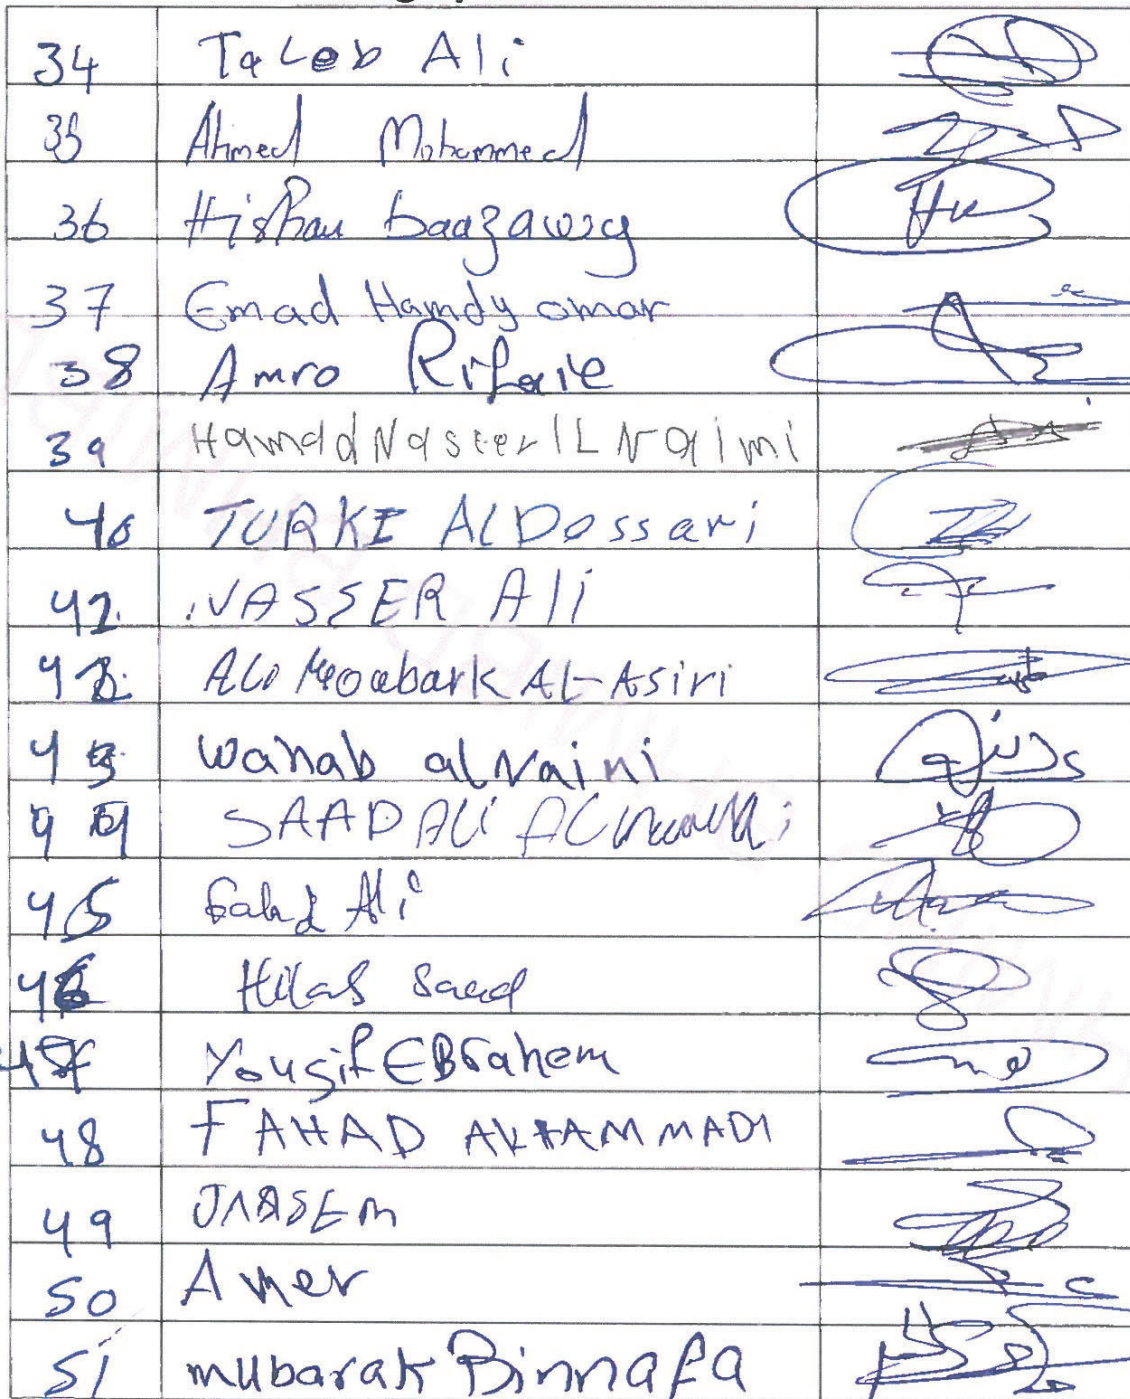 34 Taleb Ali
35 Ahmed Mohammed
36 Hisham baazawzy
37 Emad Hamdy omar
38 Amro Rifaie
39 Hamad Nasser IL Naimi
40 TURKI ALDossari
41 NASSER Ali
42 ALi Moubark AL-Asiri
43 wahab al Naimi
44 SAAD ALi
45 Ali
46 Saad
47 Yousif EBrahem
48 FAHAD
49 JAASEM
50 Amer
51 mubarak Binnafa